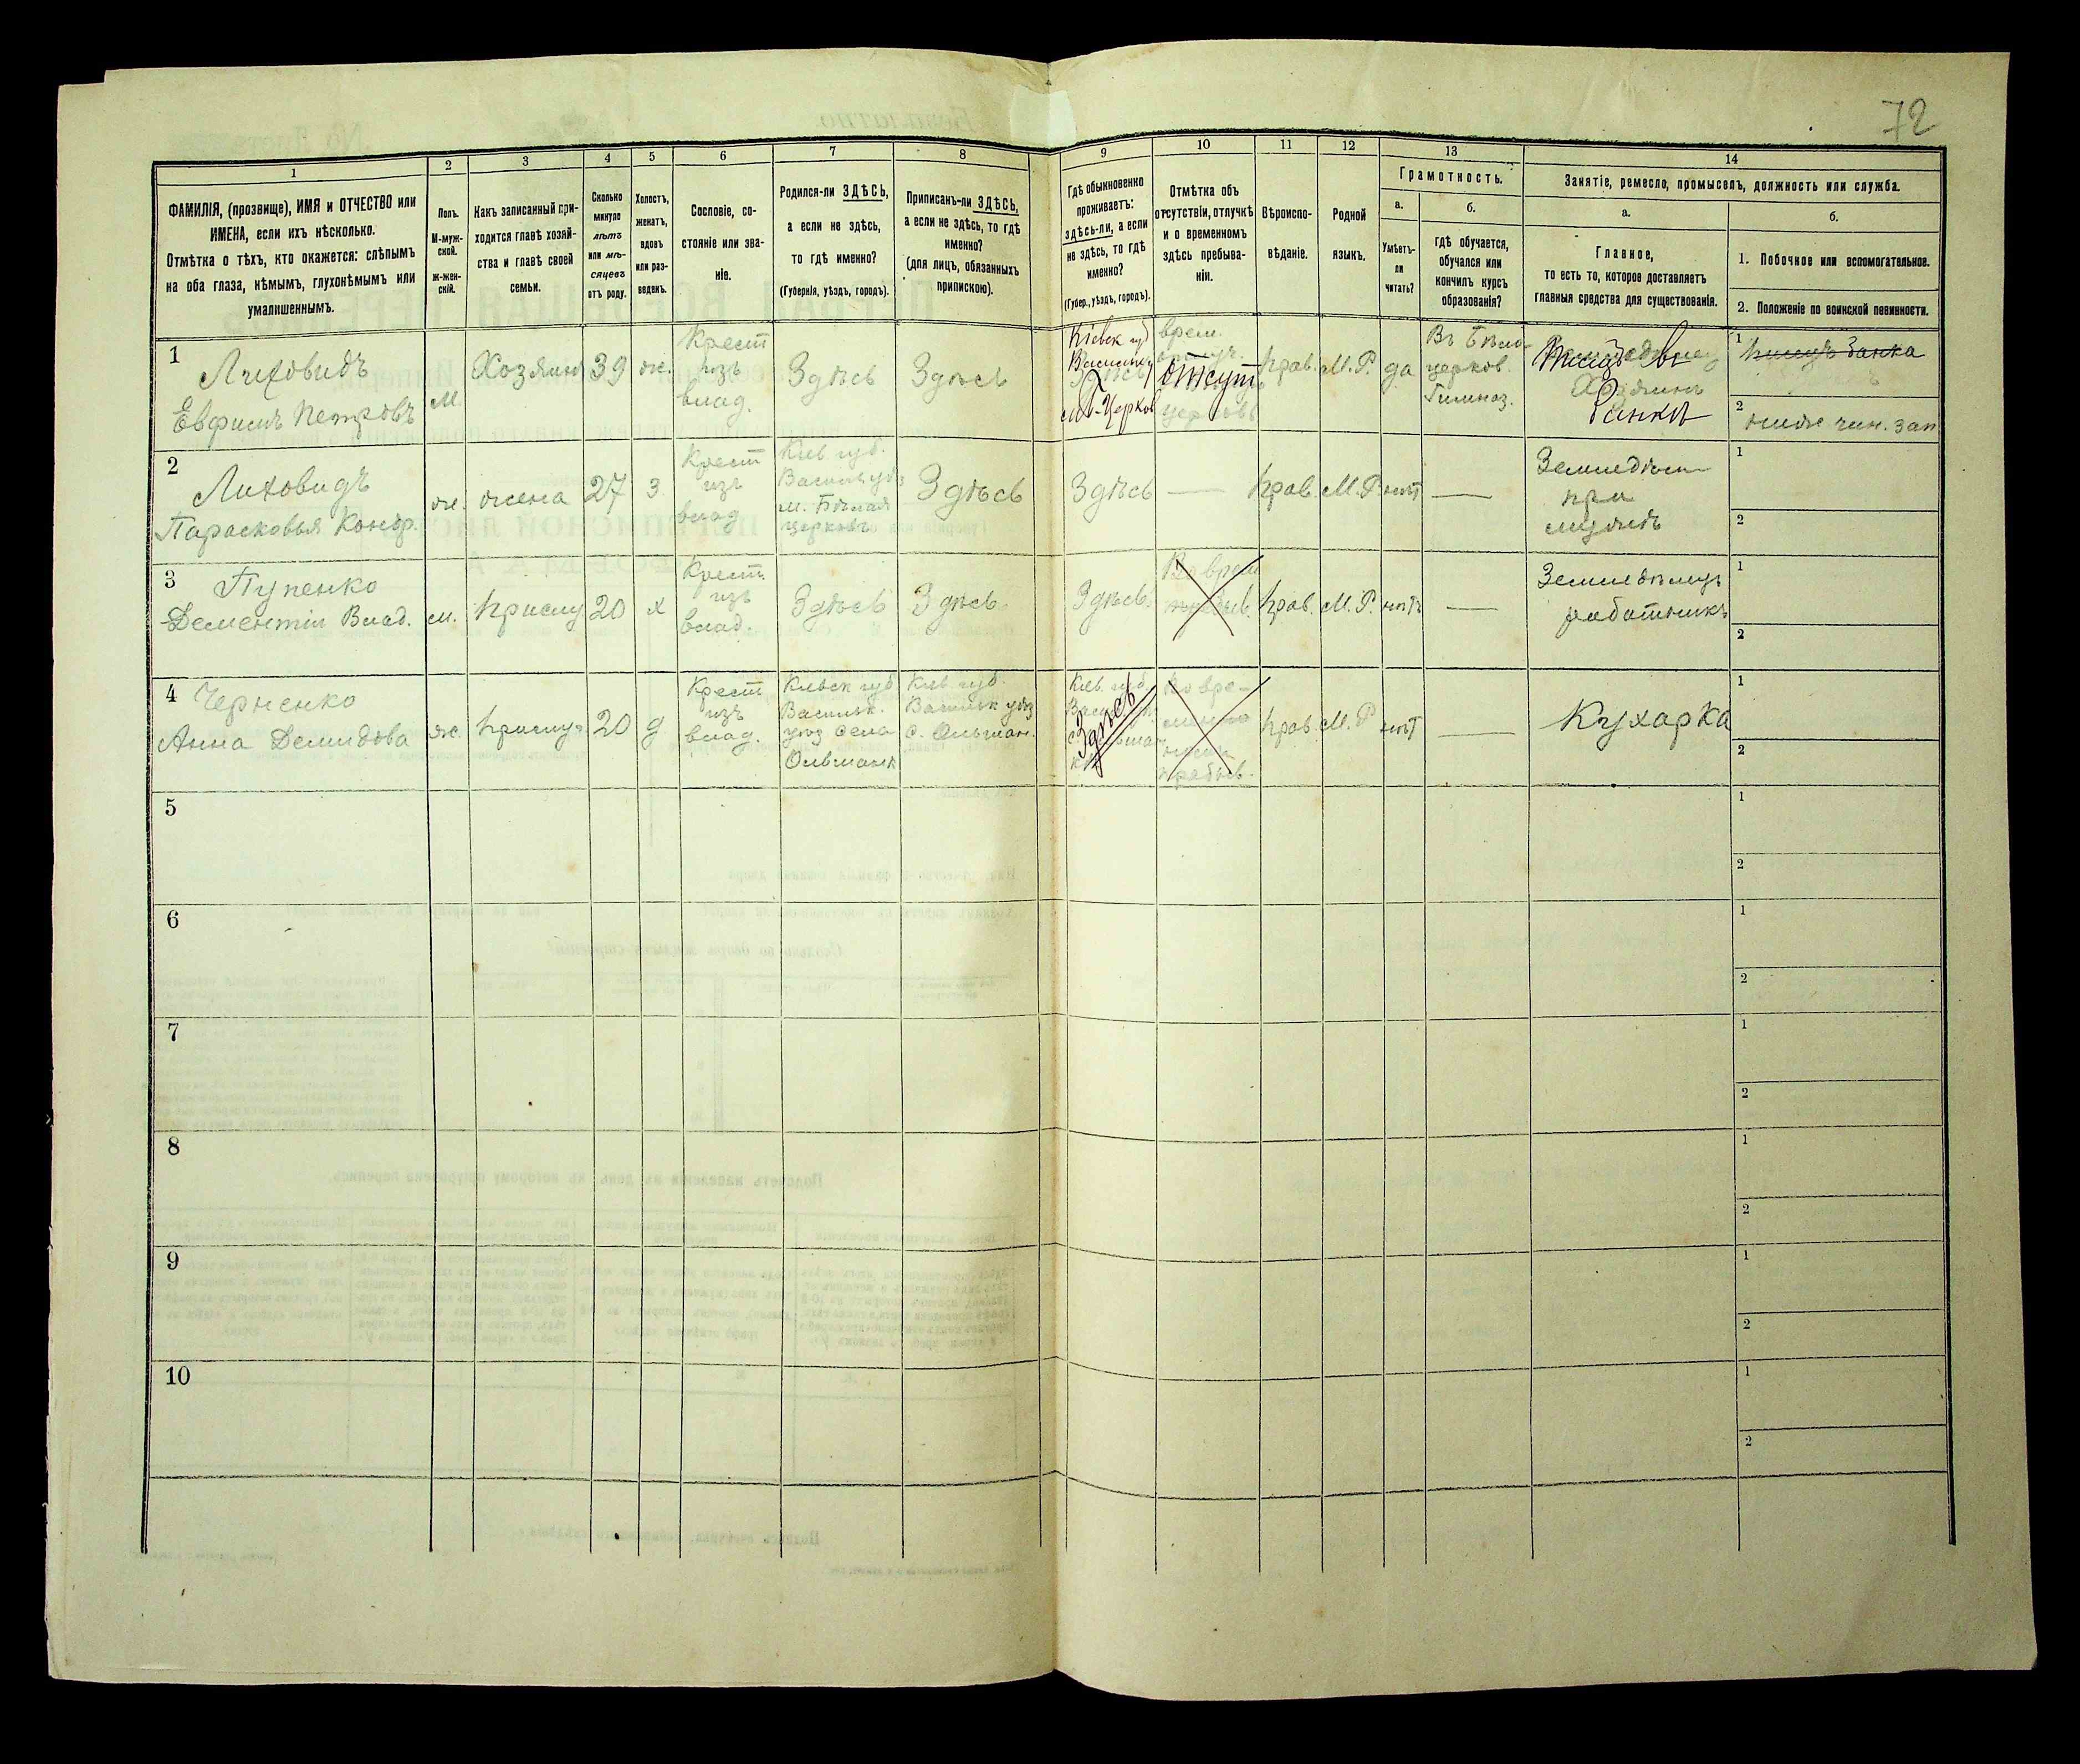 72
1
2
3
4
5
6
7
8
9
10
11
12
13
14
ФАМИЛІЯ, (прозвище), ИМЯ и ОТЧЕСТВО или
ИМЕНА, если ихъ нѣсколько.
Отмѣтка о тѣхъ, кто окажется: слѣпымъ
на оба глаза, нѣмымъ, глухонѣмымъ или
умалишеннымъ.
Полъ.
М-муж-
ской.
ж-жен-
скій.
Какъ записанный при-
ходится главѣ хозяй-
ства и главѣ своей
семьи.
Сколько
минуло
лѣтъ
или мѣ-
сяцевъ
отъ роду.
Холостъ,
женатъ,
вдовъ
или раз-
веденъ.
Сословіе, со-
стояніе или зва-
ніе.
Родился-ли ЗДѢСЬ,
а если не здѣсь,
то гдѣ именно?
(Губернія, уѣздъ, городъ).
Приписанъ-ли ЗДѢСЬ,
а если не здѣсь, то гдѣ
именно?
(для лицъ, обязанныхъ
припискою).
Гдѣ обыкновенно
проживаетъ:
здѣсь-ли, а если
не здѣсь, то гдѣ
именно?
(Губер., уѣздъ, городъ).
Отмѣтка объ
отсутствіи, отлучкѣ
и о временномъ
здѣсь пребыва-
ніи.
Вѣроиспо-
вѣданіе.
Родной
языкъ.
Грамотность.
а.
Умѣетъ-
ли
читать?
б.
гдѣ обучается,
обучался или
кончилъ курсъ
образованія?
Занятіе, ремесло, промыселъ, должность или служба.
а.
Главное,
то есть то, которое доставляетъ
главныя средства для существованія.
б.
1. Побочное или вспомогательное.
2. Положеніе по воинской повинности.
1
Лиховидъ
Евфимъ Петровъ
М.
Хозяинъ
39
ж.
Крест
изъ
влад.
Здѣсь
Здѣсь
Кіевск губ
м. Б-Церков
врем.
отсут
прав.
М.Р.
да
Въ Бѣло-
церков.
Гимназ.
Хозяинъ
банкѣ
1
писецъ банка
2
ниж чин. зап
2
Лиховидъ
Парасковья Кондр.
ж.
жена
27
з
Крест
изъ
влад
Кіев губ.
Васильк уѣз
м. Бѣлая
церковь
Здѣсь
Здѣсь
—
прав.
М.Р
нѣт
—
Земледѣл
при
мужѣ
1
2
3
Пупенко
Дементій Влад.
м.
прислу
20
х
Крест
изъ
влад.
Здѣсь
Здѣсь
Здѣсь
прав.
М.Р.
нѣтъ
—
Земледѣлецъ
работникъ
1
2
4
Черненко
Анна Демидова
ж
прислу
20
д
Крест
изъ
влад.
Кіевск губ
Васильк.
уѣз села
Ольшанк
Кіев. губ.
Васильк уѣз
с. Ольшан.
Кіев. губ.
Здѣсь
По вре-
пребыв.
прав.
М.Р
нѣт
—
Кухарка
1
2
5
1
2
6
1
2
7
1
2
8
1
2
9
1
2
10
1
2